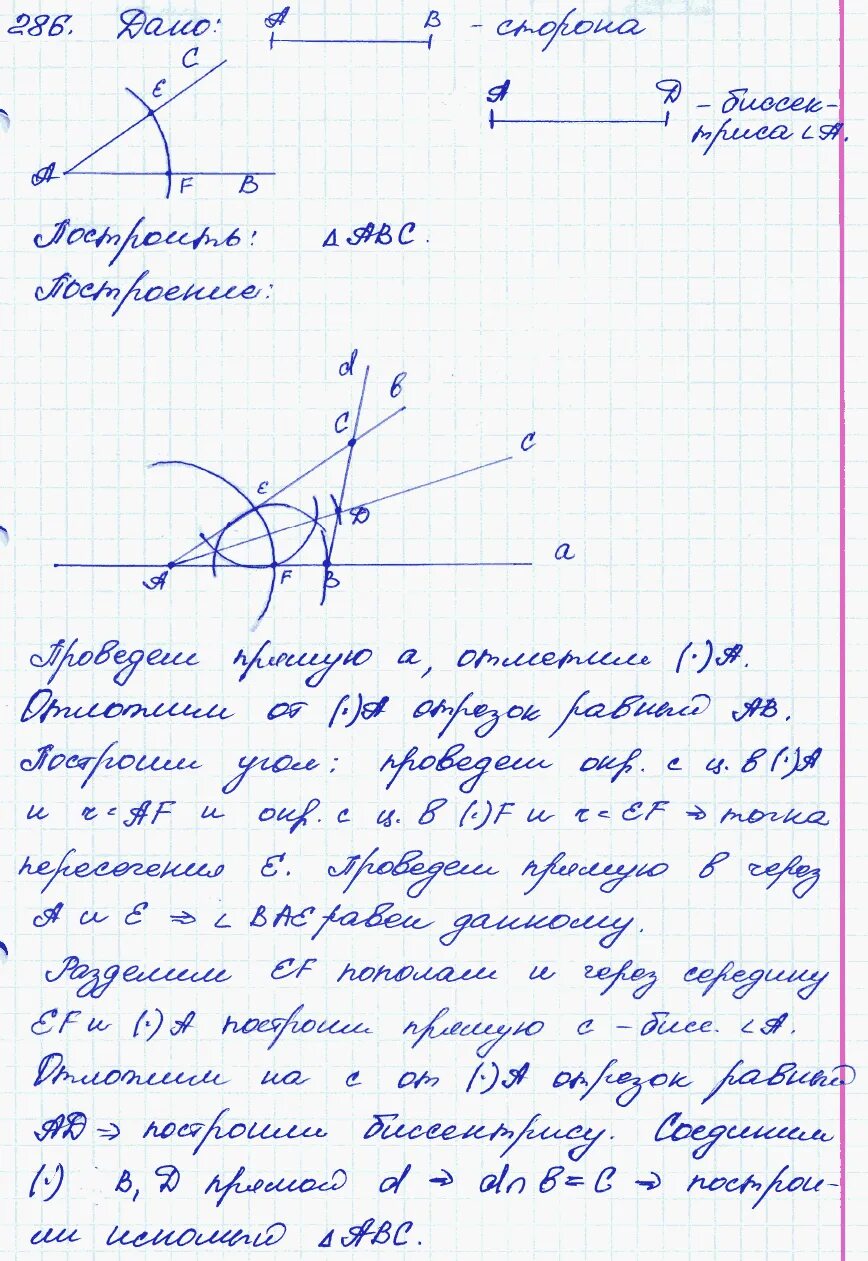 286. Дано: A B - сторона
C
E
A D - биссек-
триса ∠A.
A F B
Построить: △ABC.
Построение:
d
в
C
c
E
D
a
A F B
Проведем прямую a, отметим (·)A.
Отложим от (·)A отрезок равный AB.
Построим угол: проведем окр. с ц. в (·)A
и r=AF и окр. с ц. в (·)F и r=EF ⇒ точка
пересечения E. Проведем прямую в через
A и E ⇒ ∠BAE равен данному.
Разделим EF пополам и через середину
EF и (·)A построим прямую c - бисс. ∠A.
Отложим на c от (·)A отрезок равный
AD ⇒ построили биссектрису. Соединим
(·) B, D прямой d ⇒ d∩в=C ⇒ построи-
ли искомый △ABC.